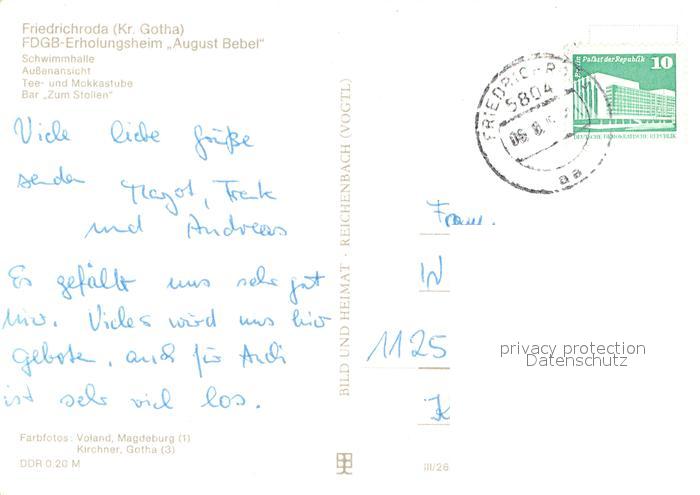 Friedrichroda (Kr. Gotha)
FDGB-Erholungsheim „August Bebel"
Schwimmhalle
Außenansicht
Tee- und Mokkastube
Bar „Zum Stollen"
Viele liebe Grüße
senden Margot, Frank
und Andreas
Es gefällt uns sehr gut
hier. Vieles wird uns hier
geboten, auch für Andi
ist sehr viel los.
Farbfotos: Voland, Magdeburg (1)
Kirchner, Gotha (3)
DDR 0,20 M
BILD UND HEIMAT · REICHENBACH (VOGTL)
III/26
FRIEDRICHRODA
5804
aa
Palast der Republik 10
DEUTSCHE DEMOKRATISCHE REPUBLIK
Frau
W
1125
K
privacy protection
Datenschutz